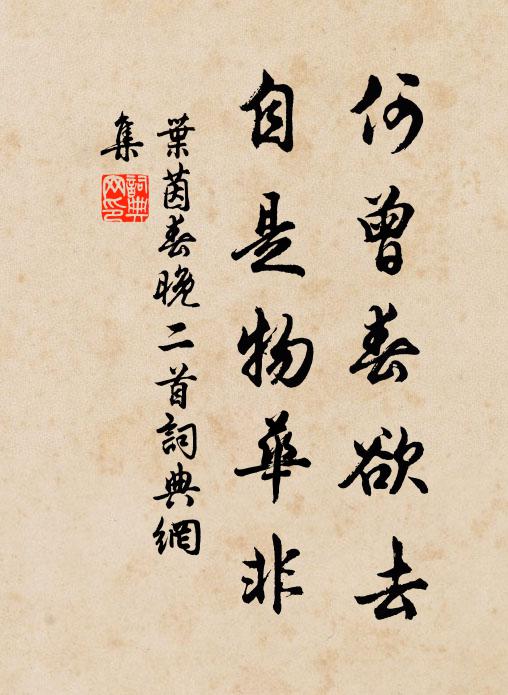 何曾春欲去
自是物華非
葉茵春晚二首詞典網
集
詞典網印